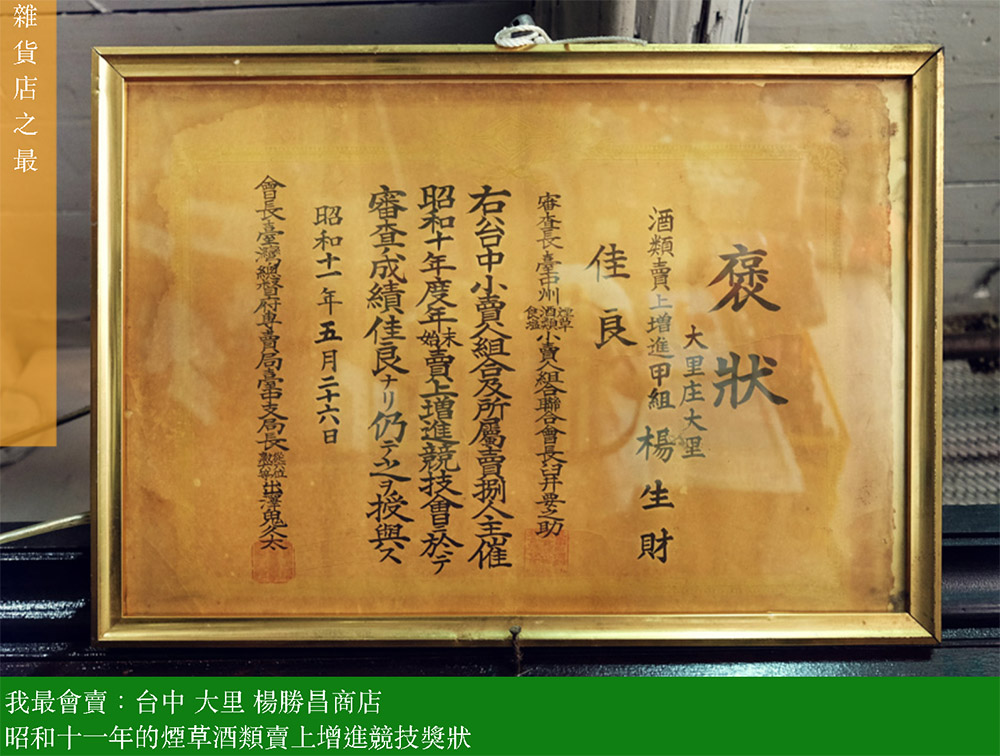 雜貨店之最
褒狀
大里庄大里
酒類賣上增進甲組 楊生財
佳良
審查長臺中州煙草酒類食鹽小賣人組合聯合會長臼井要之助
右台中小賣人組合及所屬賣捌人主催
昭和十年度年末年始賣上增進競技會ニ於テ
審査ノ成績佳良ナリ仍テ之ヲ授與ス
昭和十一年五月二十六日
會長臺灣總督府專賣局臺中支局長出澤鬼久太
我最會賣：台中 大里 楊勝昌商店
昭和十一年的煙草酒類賣上增進競技獎狀